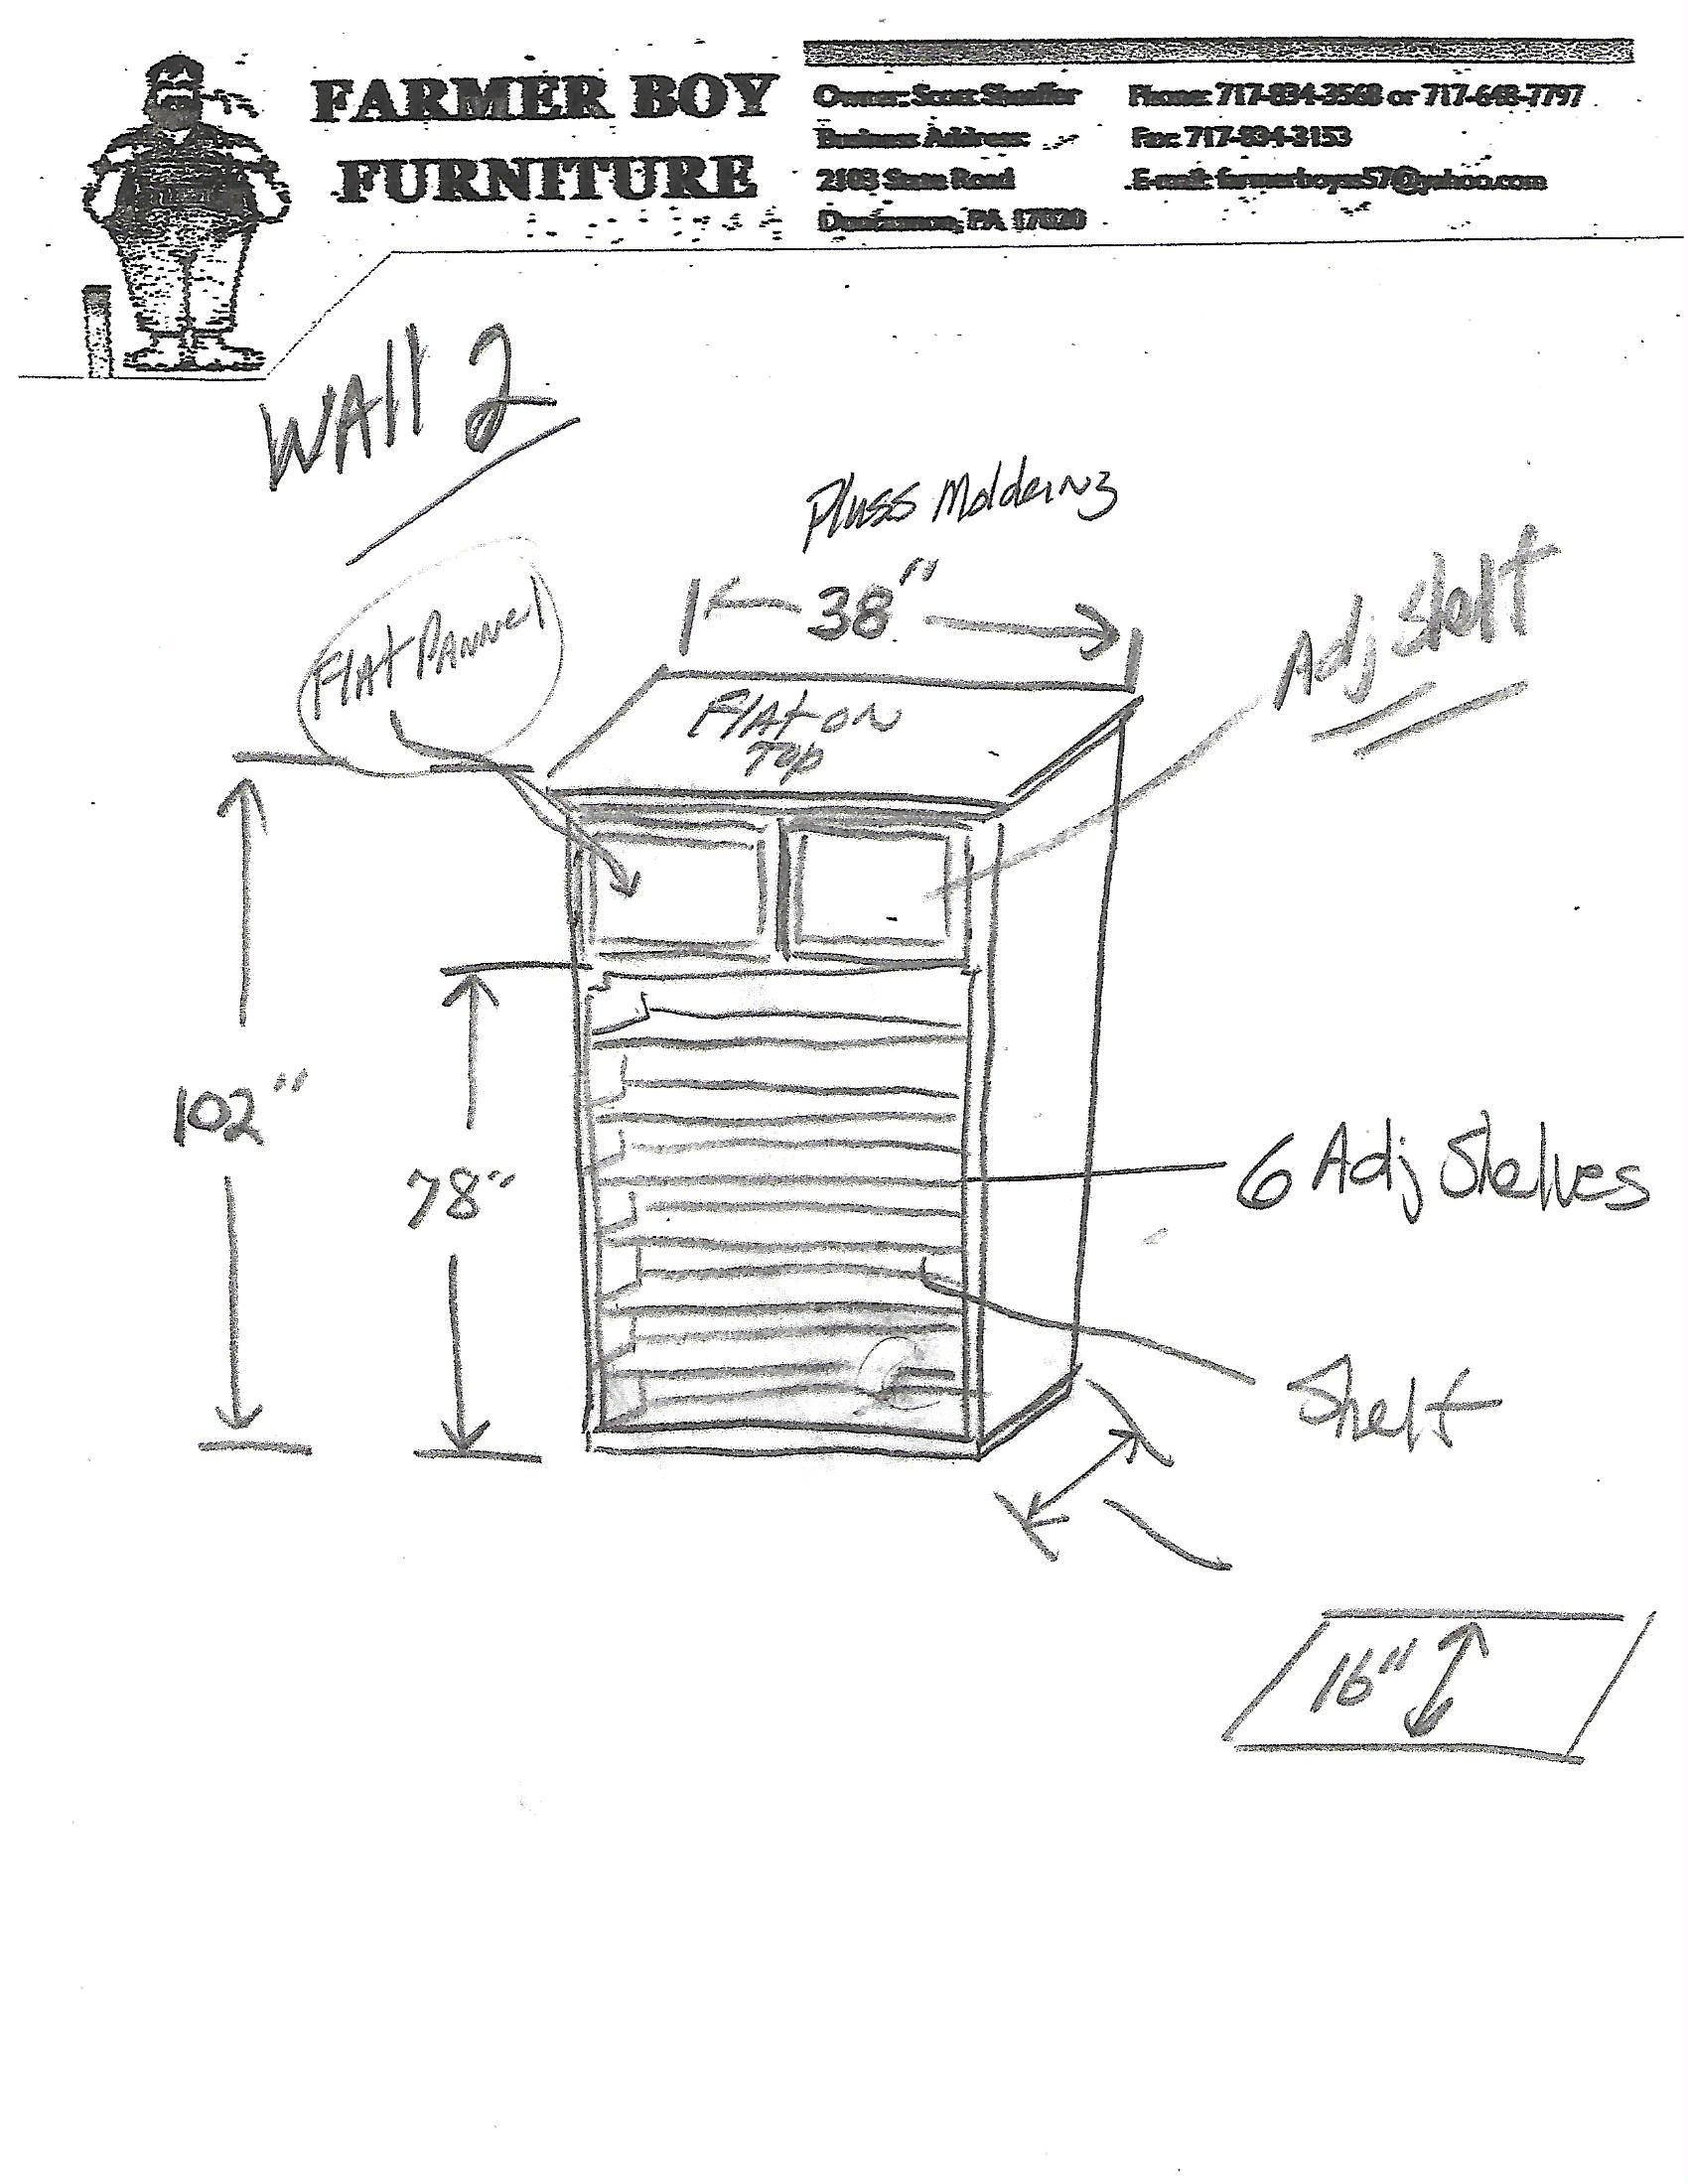 FARMER BOY
FURNITURE
Owner: Scott
Business Address:
2103 State Road
Duncannon, PA 17020
Phone: 717-834-3568 or 717-648-7797
Fax: 717-834-3153
E-mail: farmerboyss57@yahoo.com
WAll 2
Pluss Molderng
38"
Flat Pannel
Adj Shelf
Flat on
Top
102"
78"
6 Adj Shelves
Shelf
16"